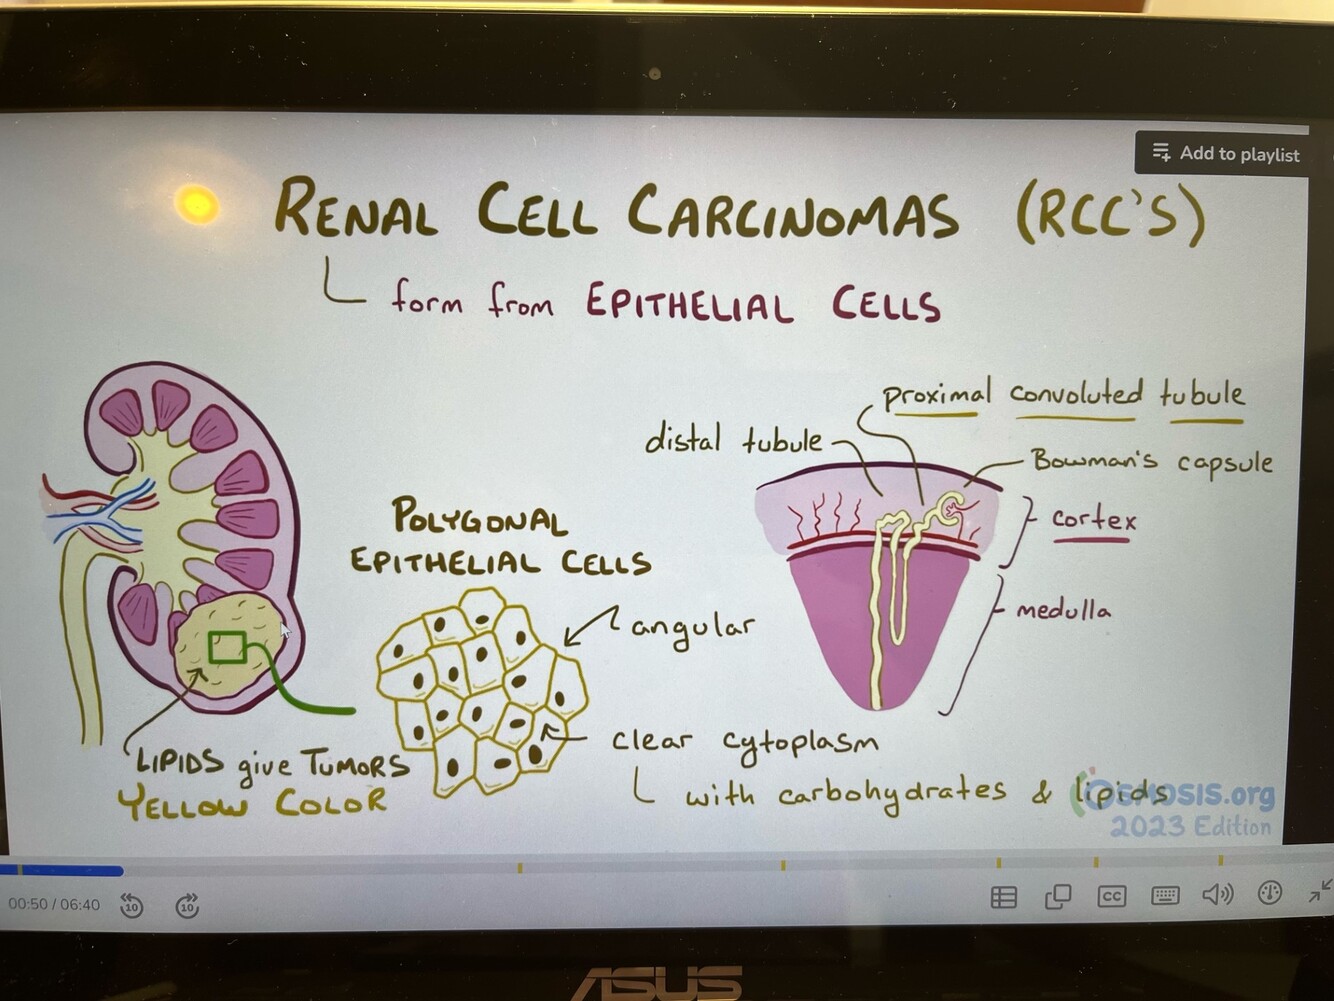 Add to playlist
RENAL CELL CARCINOMAS (RCC'S)
form from EPITHELIAL CELLS
proximal convoluted tubule
distal tubule
Bowman's capsule
cortex
medulla
POLYGONAL
EPITHELIAL CELLS
angular
clear cytoplasm
with carbohydrates & lipids
LIPIDS give TUMORS
YELLOW COLOR
OSMOSIS.org
2023 Edition
00:50 / 06:40
10
10
CC
ASUS